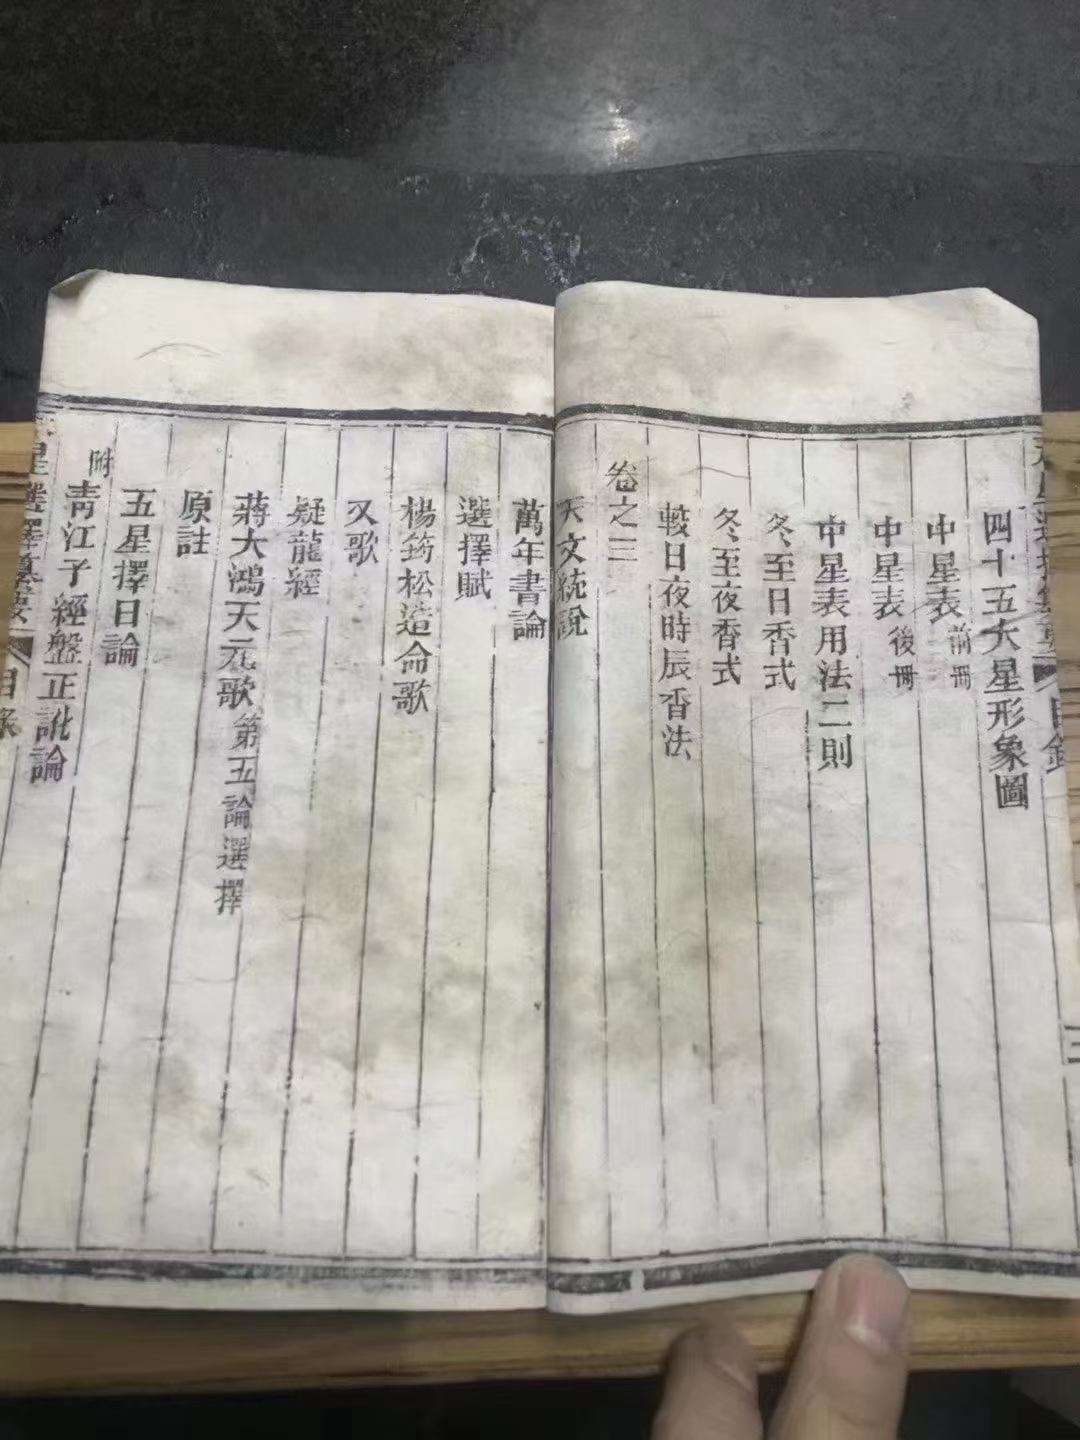 四十五大星形象圖
中星表 前冊
中星表 後冊
中星表用法二則
冬至日香式
冬至夜香式
較日夜時辰香法
卷之三
天文統說
萬年書論
選擇賦
楊筠松造命歌
又歌
疑龍經
蔣大鴻天元歌 第五論選擇
原註
五星擇日論
附
青江子經盤正訛論
目錄